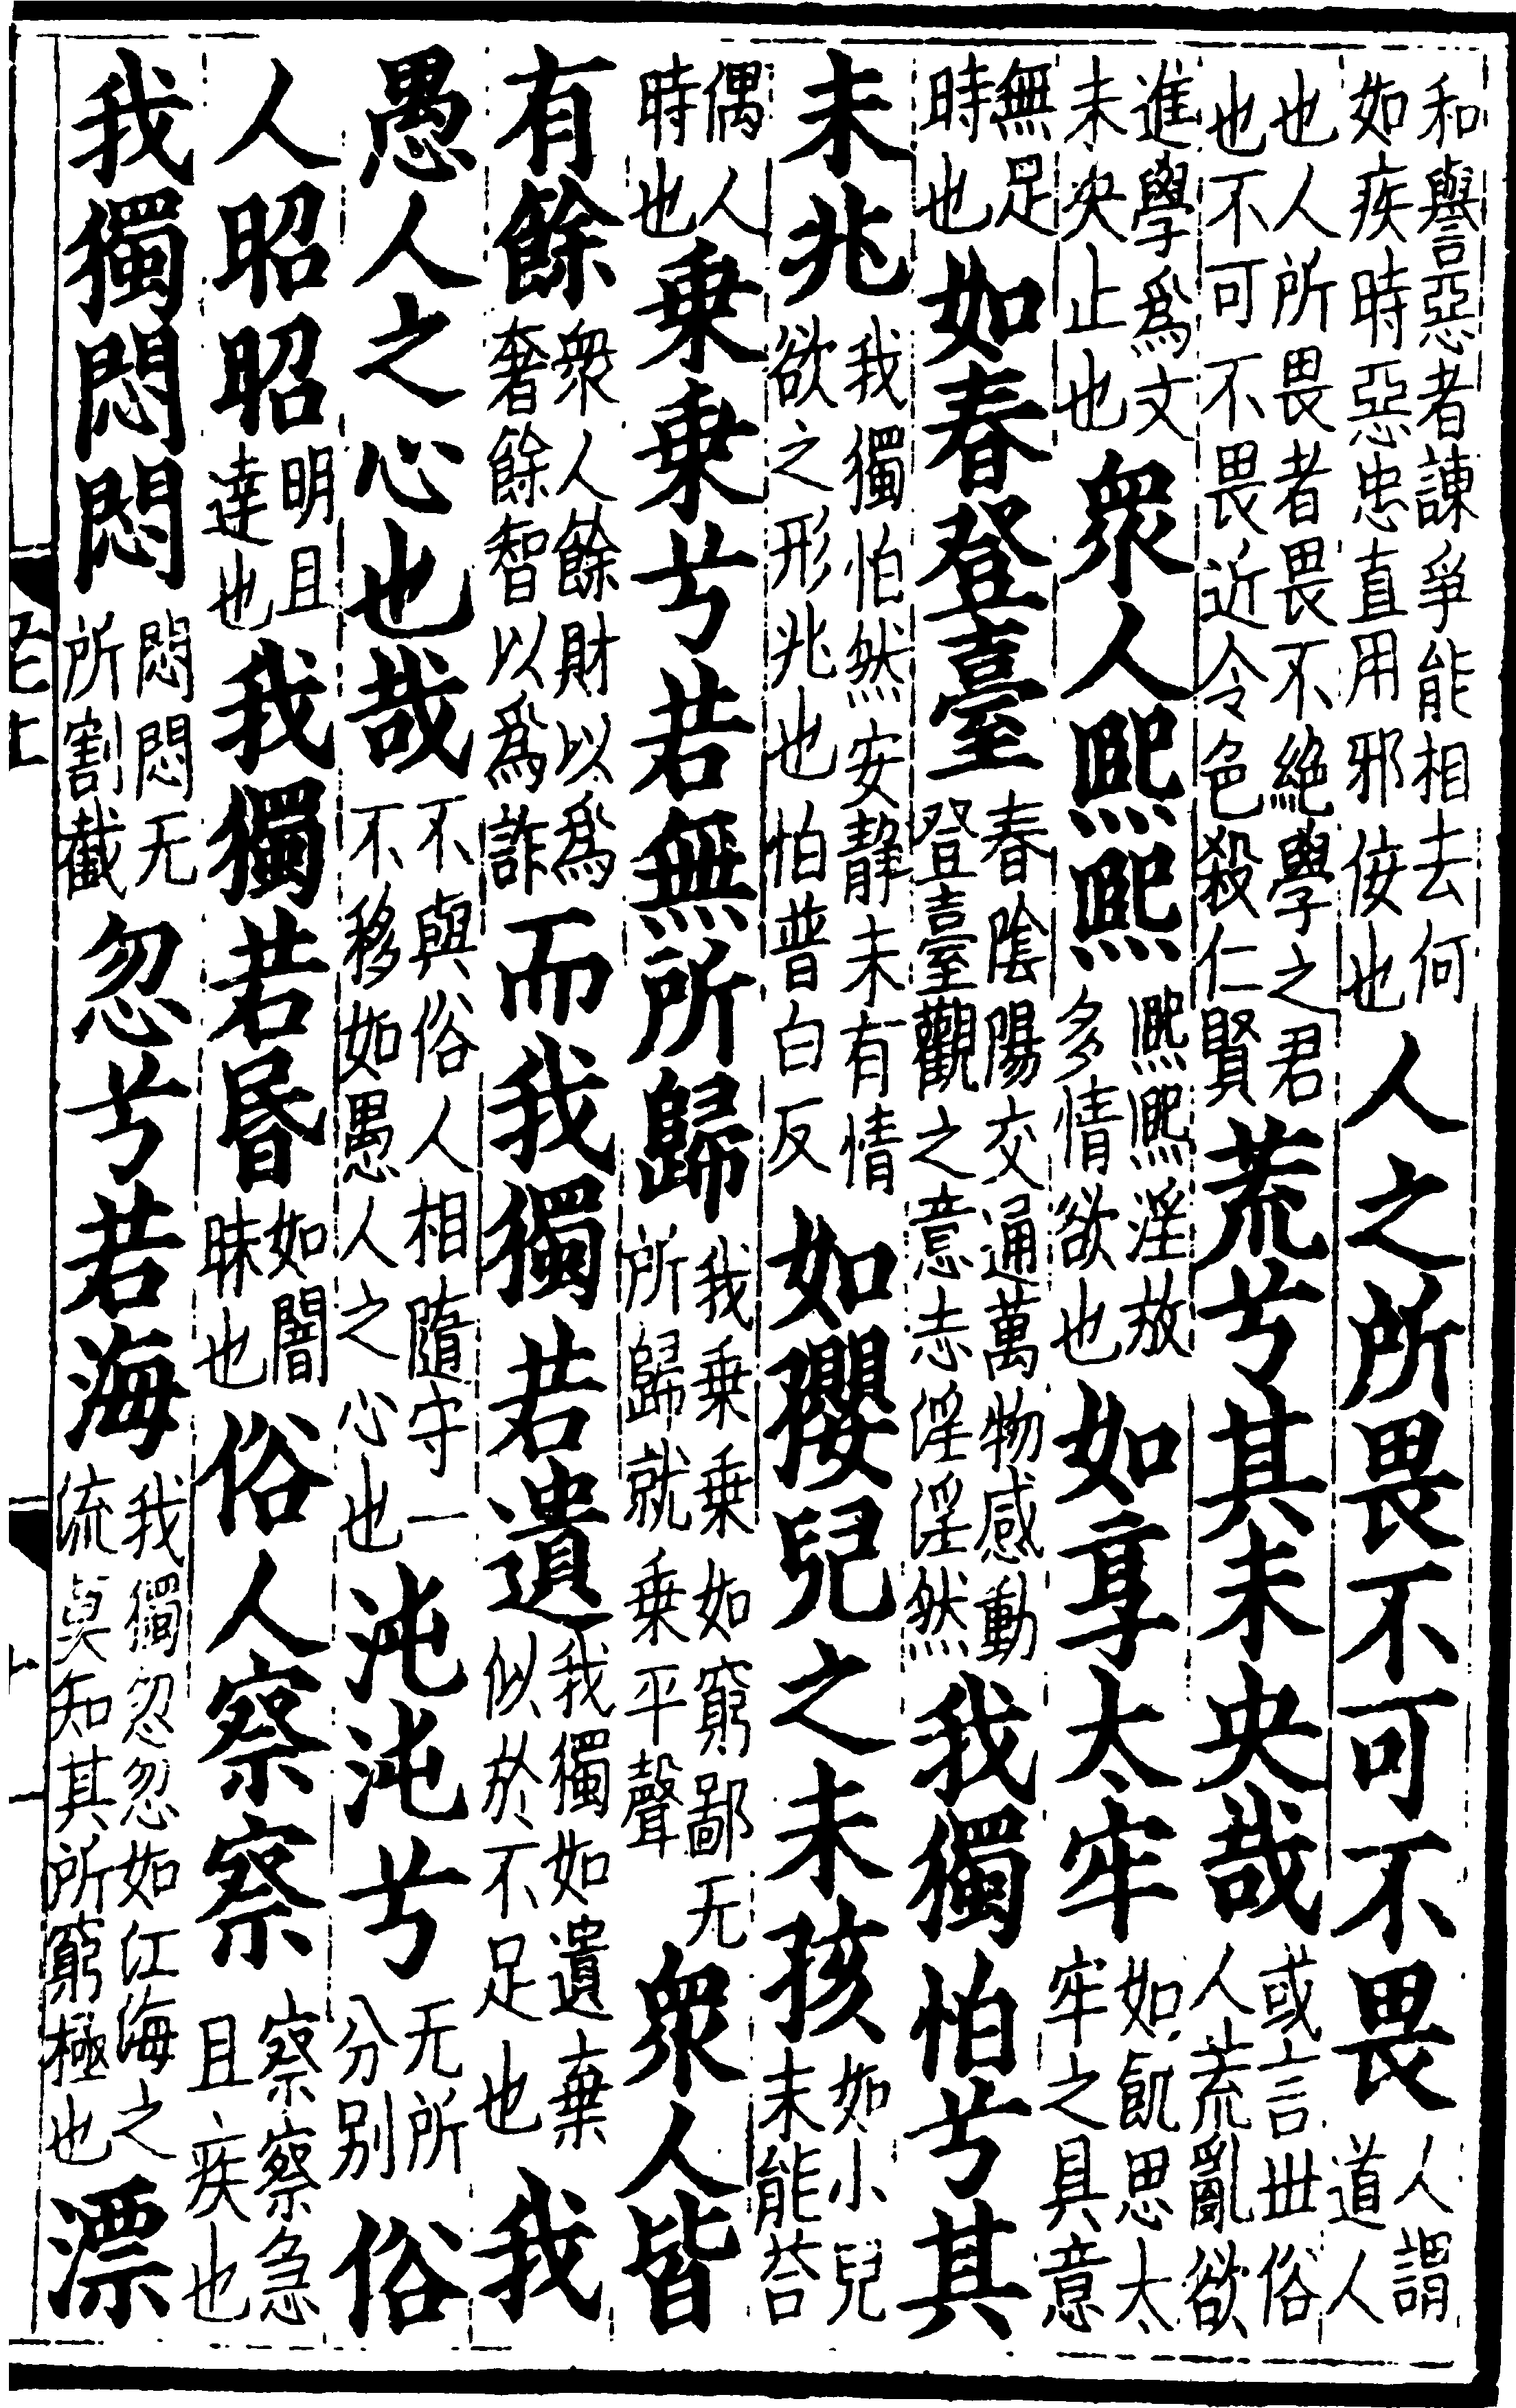 和譽惡者諫爭能相去何如疾時惡忠直用邪佞也人之所畏不可不畏人謂道人
也人所畏者畏不絶學之君也不可不畏近令色殺仁賢荒兮其未央哉或言丗俗人荒亂欲
進學爲文未央止也衆人熈熈熈熈淫放多情欲也如享太牢如飢思太牢之具意
無足時也如春登臺春陰陽交通萬物感動登臺觀之意志淫淫然我獨怕兮其
未兆我獨怕然安静未有情欲之形兆也怕普白反如孾兒之未孩如小兒未能荅
偶人時也乗乗兮若無所歸我乗乗如窮鄙无所歸就乗平聲衆人皆
有餘衆人餘財以爲奢餘智以爲詐而我獨若遺我獨如遺棄似於不足也我
愚人之心也哉不與俗人相隨守一不移如愚人之心也沌沌兮无所分别俗
人昭昭明且達也我獨若昬如闇昧也俗人察察察察急且疾也
我獨悶悶悶悶无所割截忽兮若海我獨忽忽如江海之流莫知其所窮極也漂